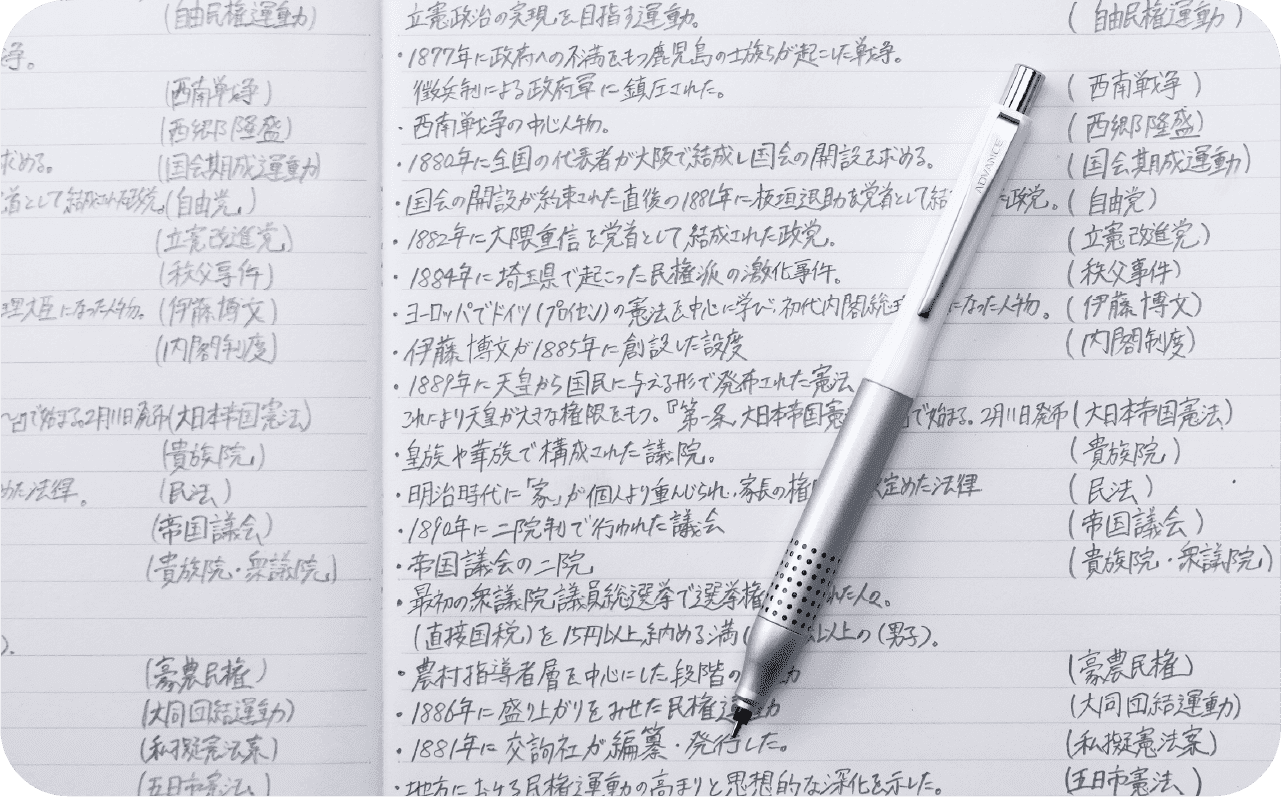 (自由民権運動)
争。
(西南戦争)
(西郷隆盛)
求める。 (国会期成運動)
首として結成された政党。(自由党)
(立憲改進党)
(秩父事件)
理大臣になった人物。 (伊藤博文)
(内閣制度)
で始まる。2月11日発布(大日本帝国憲法)
(貴族院)
めた法律。 (民法)
(帝国議会)
(貴族院・衆議院)
).
(豪農民権)
(大同団結運動)
(私擬憲法案)
(五日市憲法)
立憲政治の実現を目指す運動。 (自由民権運動)
・1877年に政府への不満をもつ鹿児島の士族らが起こした戦争。
徴兵制による政府軍に鎮圧された。 (西南戦争)
・西南戦争の中心人物。 (西郷隆盛)
・1880年に全国の代表者が大阪で結成し国会の開設を求める。 (国会期成運動)
・国会の開設が約束された直後の1881年に板垣退助を党首として結 た政党。(自由党)
・1882年に大隈重信を党首として結成された政党。 (立憲改進党)
・1884年に埼玉県で起こった民権派の激化事件。 (秩父事件)
・ヨーロッパでドイツ(プロイセン)の憲法を中心に学び、初代内閣総 になった人物。 (伊藤博文)
・伊藤博文が1885年に創設した設度 (内閣制度)
・1889年に天皇から国民に与える形で発布された憲法
これにより天皇が大きな権限をもつ。『第一条、大日本帝国憲 で始まる。2月11日発布(大日本帝国憲法)
・皇族や華族で構成された議院。 (貴族院)
・明治時代に「家」が個人より重んじられ、家長の権 定めた法律 (民法)
・1890年に二院制で行われた議会 (帝国議会)
・帝国議会の二院 (貴族院・衆議院)
・最初の衆議院議員総選挙で選挙権 れた人々。
(直接国税)を15円以上納める満( 以上の(男子)。
・農村指導者層を中心にした段階の 動 (豪農民権)
・1886年に盛り上がりをみせた民権運動 (大同団結運動)
・1881年に交詢社が編纂・発行した。 (私擬憲法案)
・地方における民権運動の高まりと思想的な深化を示した。 (五日市憲法)
ADVANCE